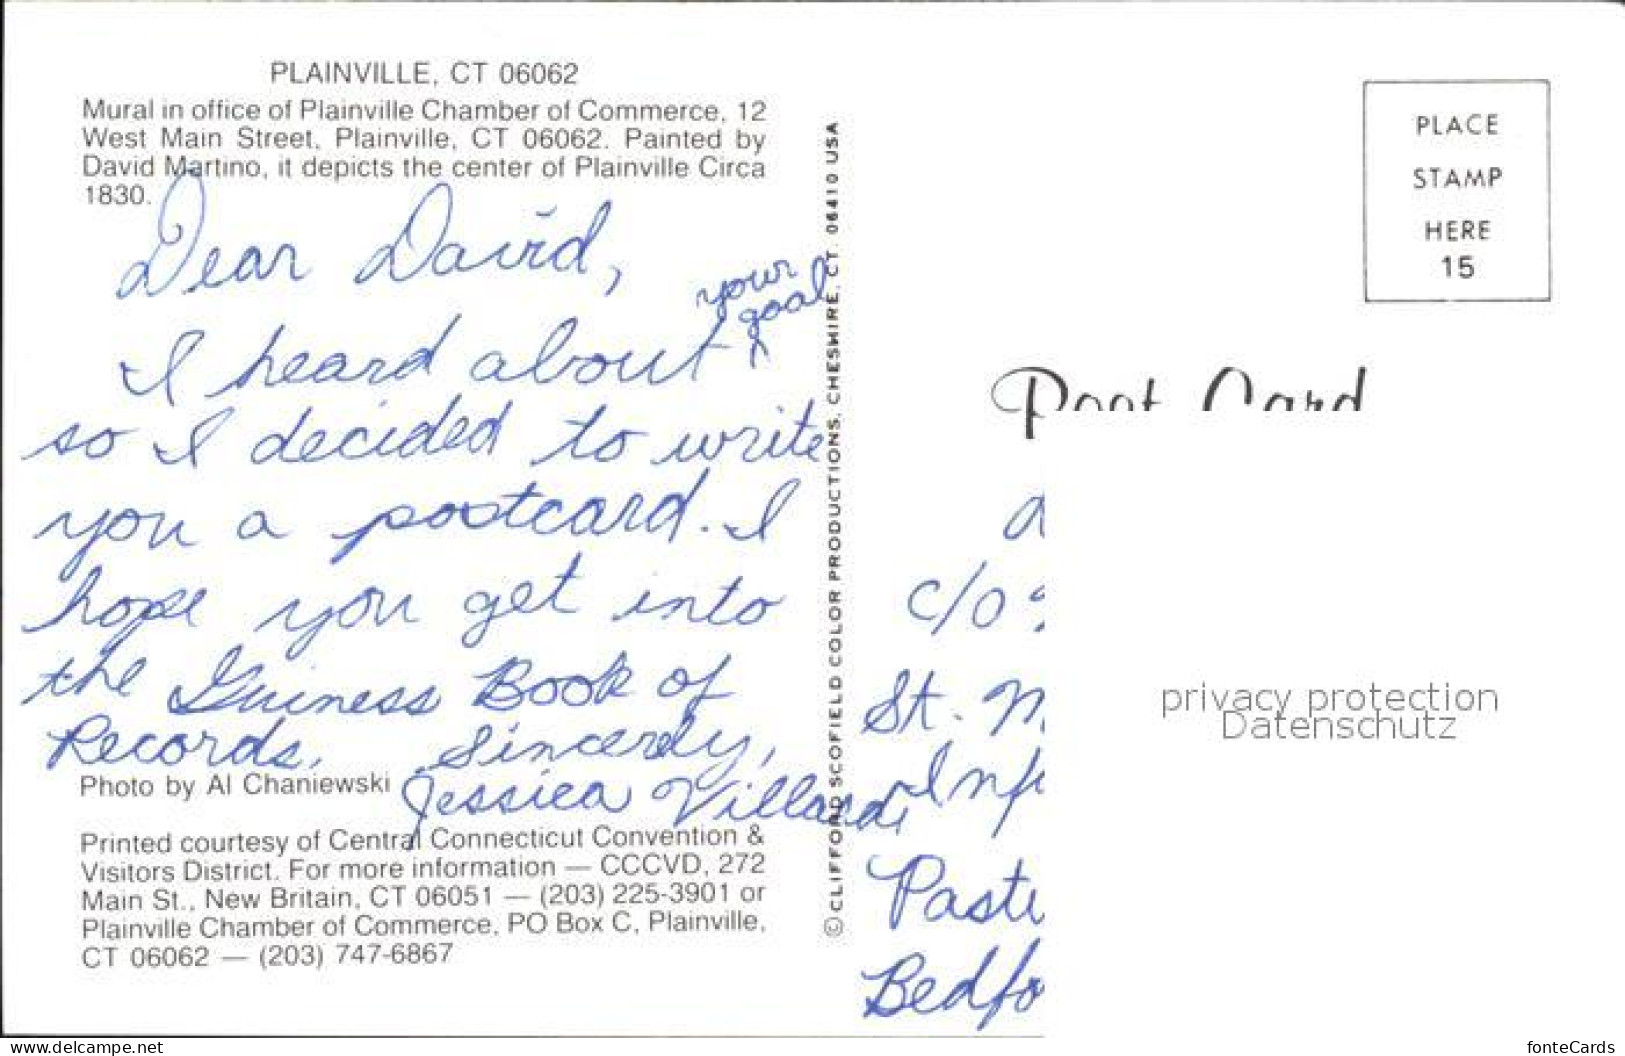 PLAINVILLE, CT 06062
Mural in office of Plainville Chamber of Commerce, 12
West Main Street, Plainville, CT 06062. Painted by
David Martino, it depicts the center of Plainville Circa
1830.
Dear David,
your
goal
I heard about ^
so I decided to write
you a postcard. I
hope you get into
the Guiness Book of
Records.
Sincerely,
Jessica Villard
Photo by Al Chaniewski
Printed courtesy of Central Connecticut Convention &
Visitors District. For more information — CCCVD, 272
Main St., New Britain, CT 06051 — (203) 225-3901 or
Plainville Chamber of Commerce, PO Box C, Plainville,
CT 06062 — (203) 747-6867
© CLIFFORD SCOFIELD COLOR PRODUCTIONS, CHESHIRE, CT. 06410 USA
PLACE
STAMP
HERE
15
Post Card
c/o
St. M
Inf
Past
Bedfo
privacy protection
Datenschutz
www.delcampe.net
fonteCards